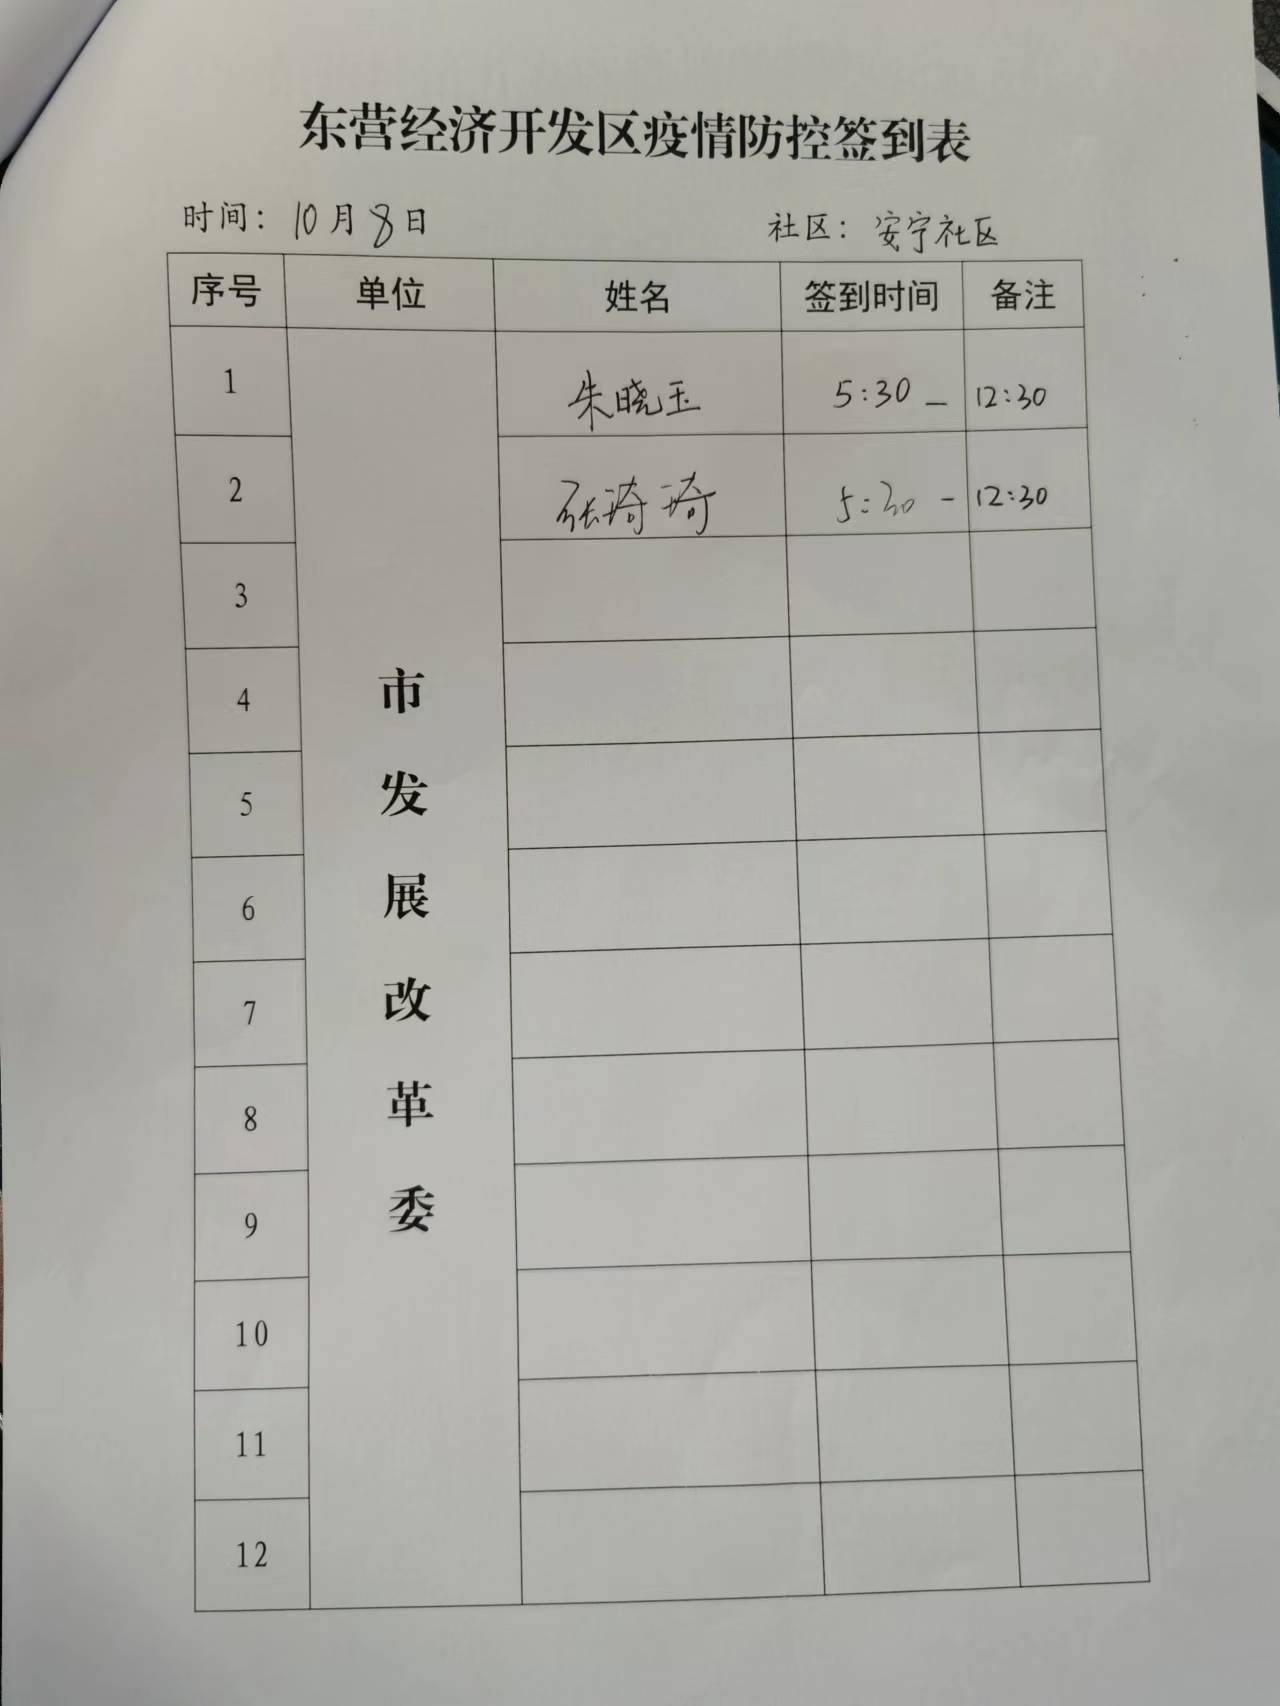 东营经济开发区疫情防控签到表
时间：10月8日 社区：安宁社区
序号 单位 姓名 签到时间 备注
市发展改革委
1 朱晓玉 5:30 — 12:30
2 张琦琦 5:30 - 12:30
3
4
5
6
7
8
9
10
11
12